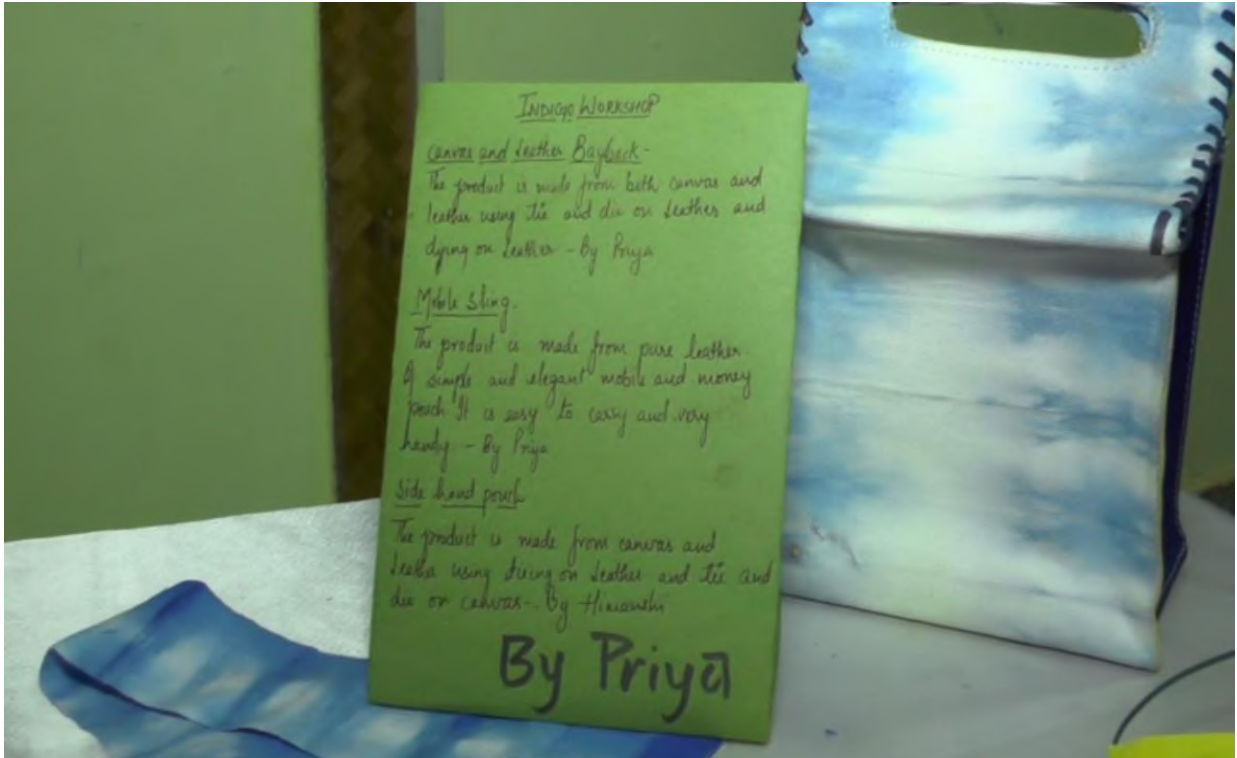 INDIGO WORKSHOP
Canvas and Leather Bagback -
The product is made from both canvas and
leather using tie and die on leather and
dying on leather - By Priya
Mobile Sling.
The product is made from pure leather.
A simple and elegant mobile and money
pouch. It is easy to carry and very
handy. - By Priya
Side hand pouch
The product is made from canvas and
leather using dieing on leather and tie and
die on canvas - By Himanshi
By Priya